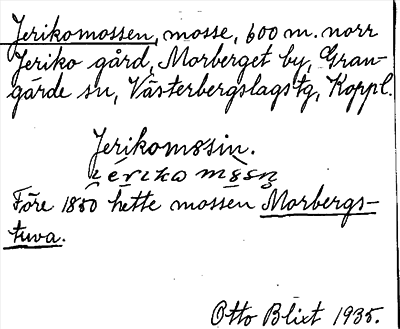 Jerikomossen, mosse, 600 m. norr
Jeriko gård, Morberget by, Gran-
gärde sn, Västerbergslags tg, Koppl.
Jerikomosin.
Före 1850 hette mossen Morbergs-
tuva.
Otto Blixt 1935.